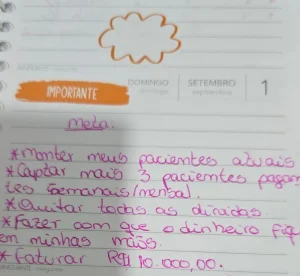 DOMINGO
SETEMBRO
1
IMPORTANTE
domingo
septiembre
meta:
*manter meus pacientes atuais
*Captar mais 3 pacientes pagan
tes semanais/mensal.
*Quitar todas as dívidas.
*Fazer com que o dinheiro fiq
em minhas mãos.
*faturar R$ 10.000,00.